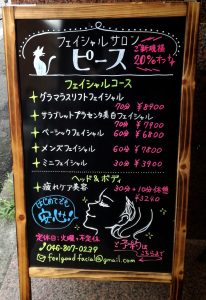 フェイシャルサロン
ピース
ご新規様
20%オフ
フェイシャルコース
グラマラスリフトフェイシャル
70分 ¥8900
サラブレットプラセンタ美白フェイシャル
70分 ¥7900
ベーシックフェイシャル 60分 ¥6800
メンズフェイシャル 60分 ¥7800
ミニフェイシャル 30分 ¥3900
ヘッド&ボディ
疲れケア美容 30分+10分休憩
¥3240
はじめてでも
安心!
定休日:火曜+不定休
046-807-0239
feelgoodfacial@gmail.com
ご予約は
こちらまで